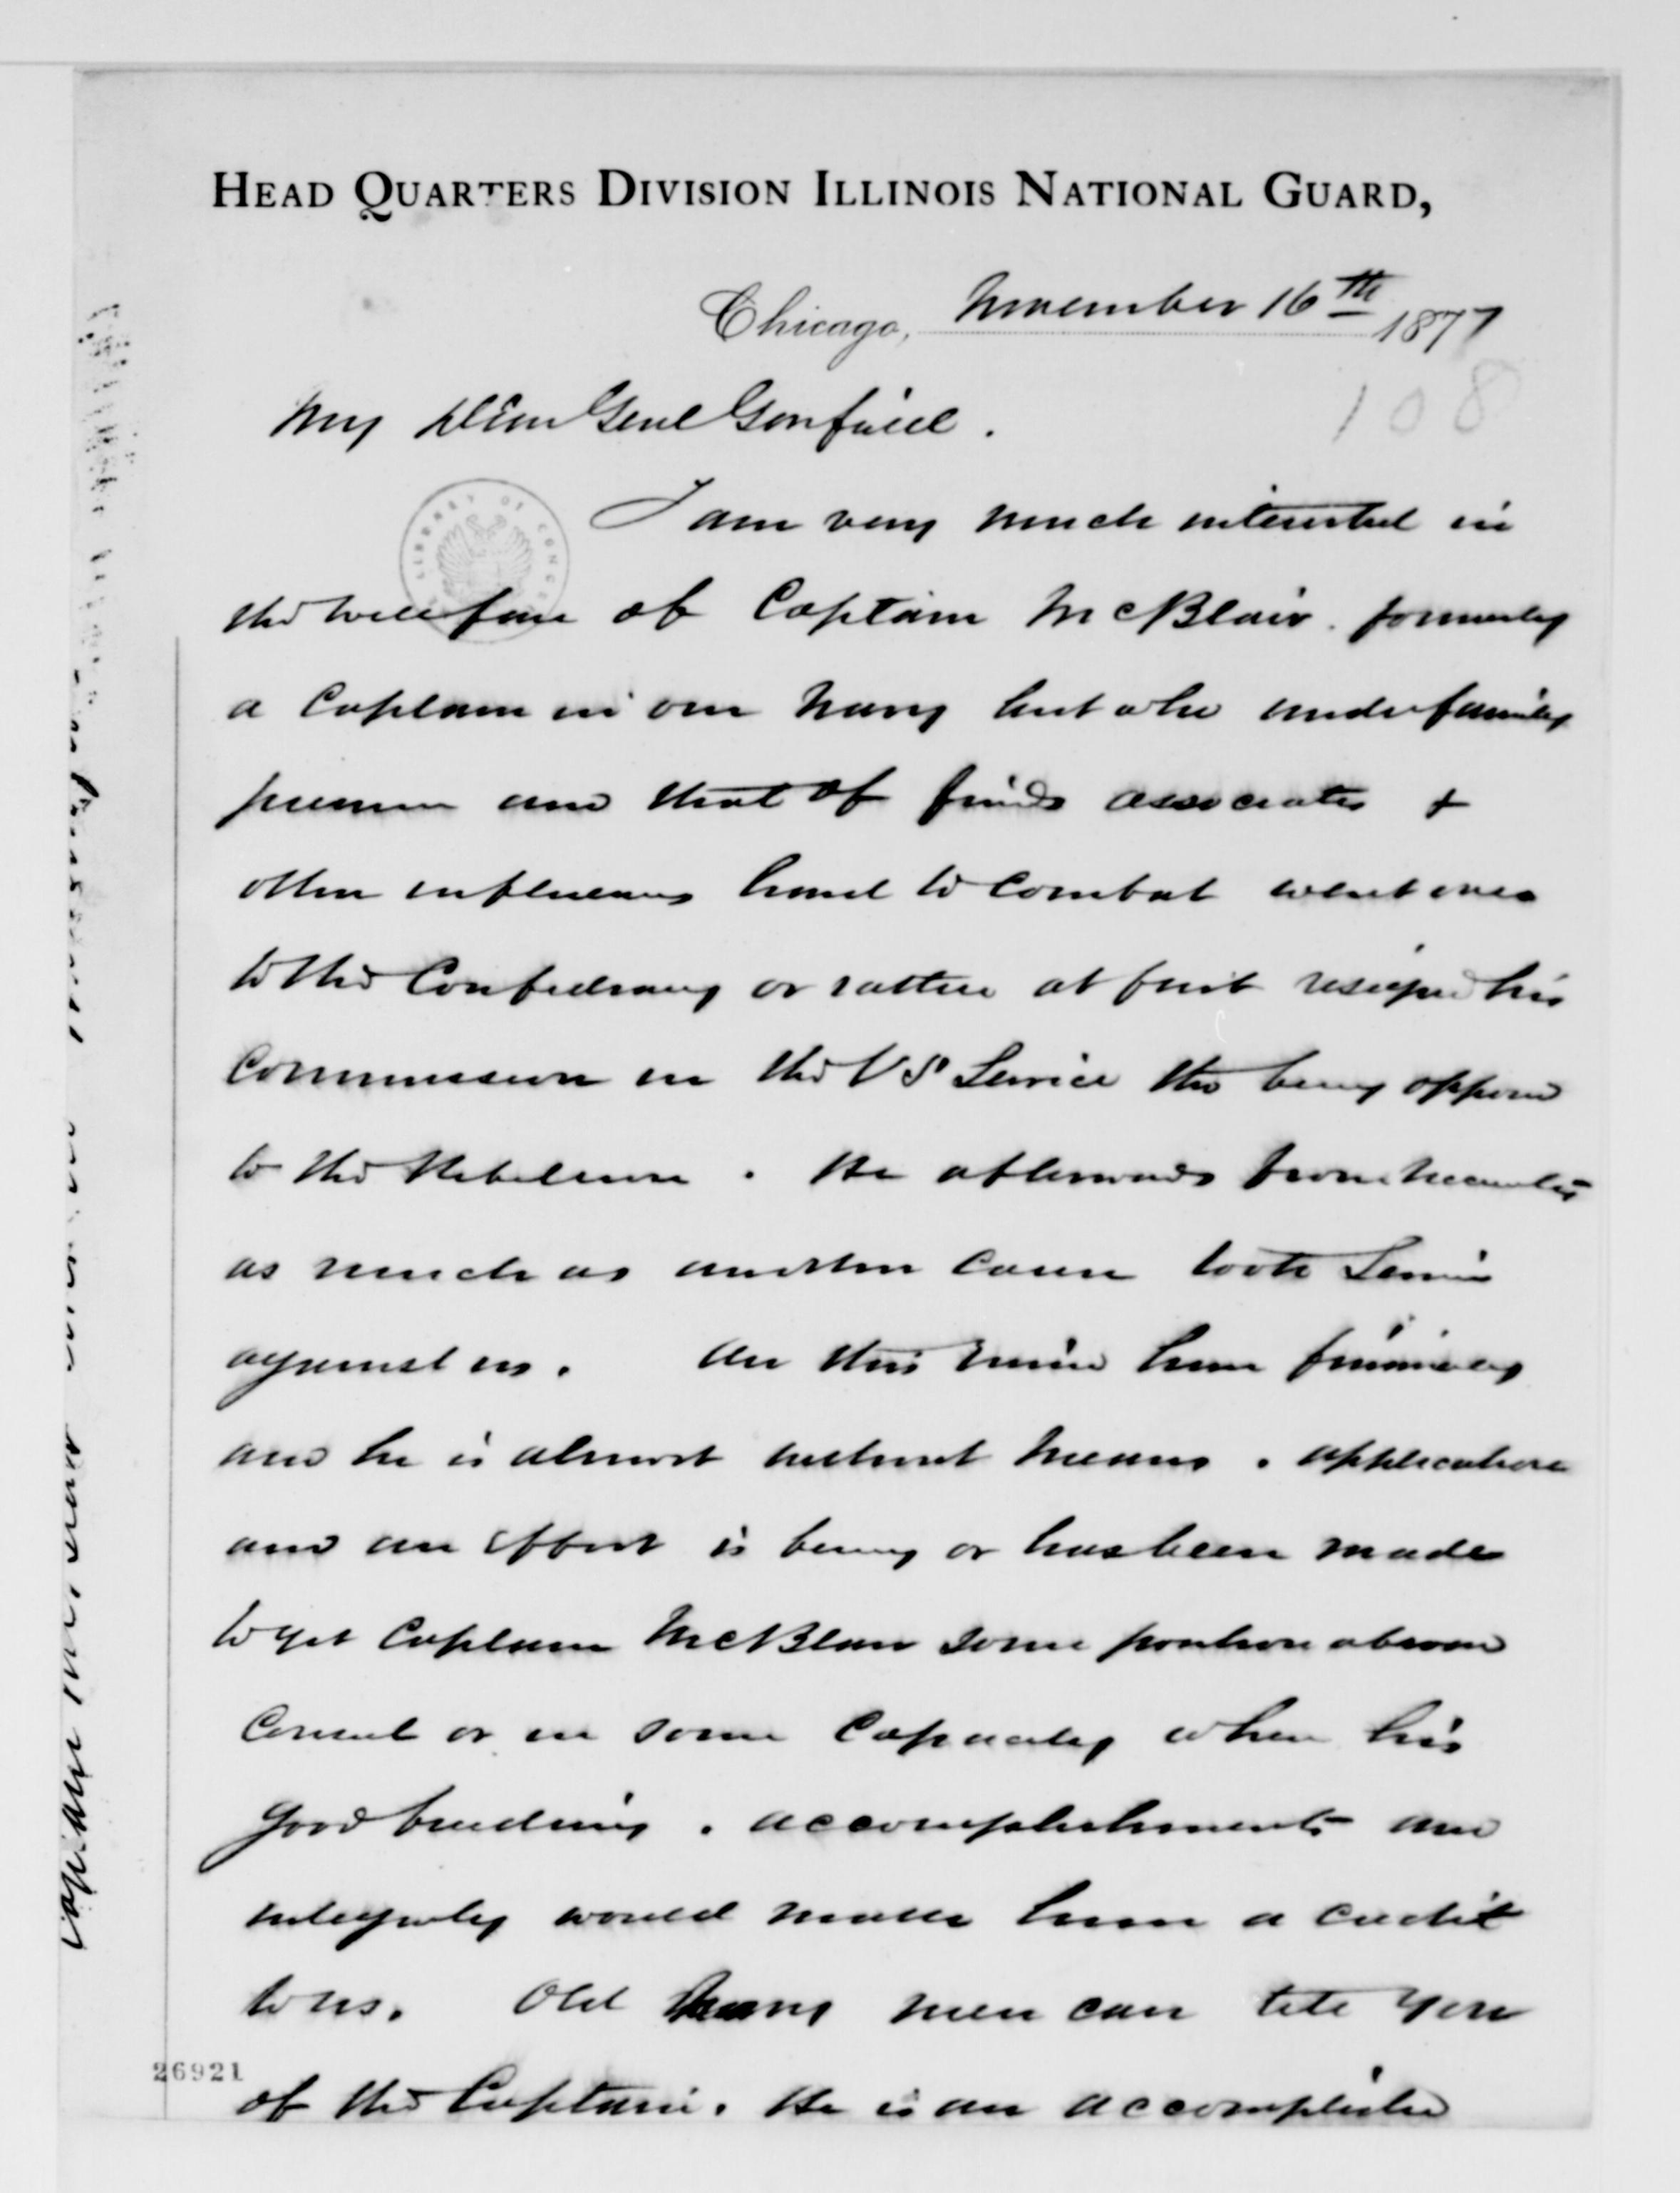 HEAD QUARTERS DIVISION ILLINOIS NATIONAL GUARD,
Chicago, November 16th 1877
108
My Dear Genl Garfield.
I am very much interested in
the welfare of Captain McBlair. formerly
a Captain in our Navy but who under family
pressure and that of friends associates &
other influences hard to combat went over
to the Confederacy or rather at first resigned his
Commission in the US Service tho being opposed
to the Rebellion. He afterwards from necessity
as much as another cause took Service
against us. All this ruined him financially
and he is almost without means. application
and an effort is being or has been made
to get Captain McBlair some position abroad
Consul or in some Capacity where his
good breeding. accomplishments and
integrity would make him a credit
to us. Old Navy men can tell you
of the Captain. He is an accomplished
LIBRARY OF CONGRESS
26921